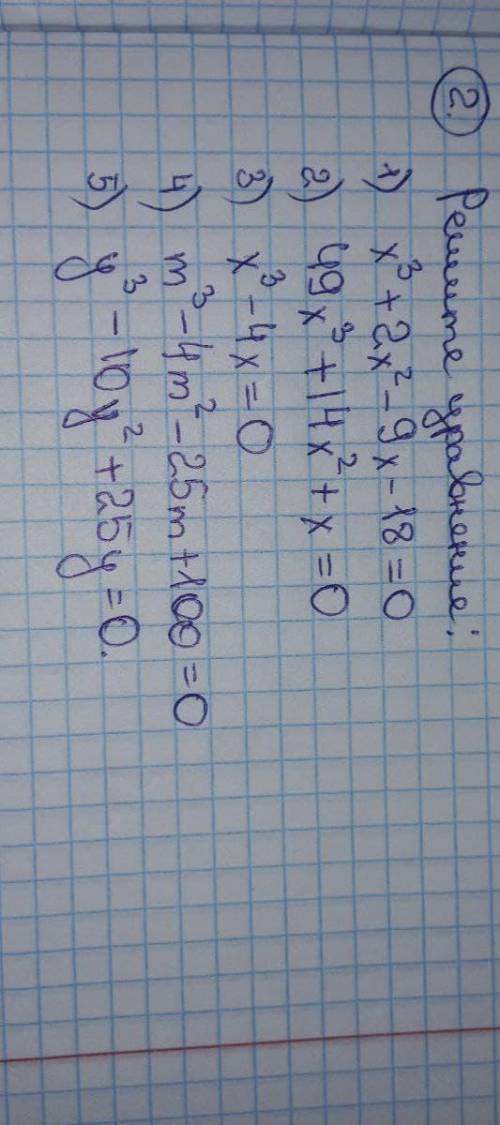 2. Решите уравнение:
1) x³ + 2x² - 9x - 18 = 0
2) 49x³ + 14x² + x = 0
3) x³ - 4x = 0
4) m³ - 4m² - 25m + 100 = 0
5) y³ - 10y² + 25y = 0.